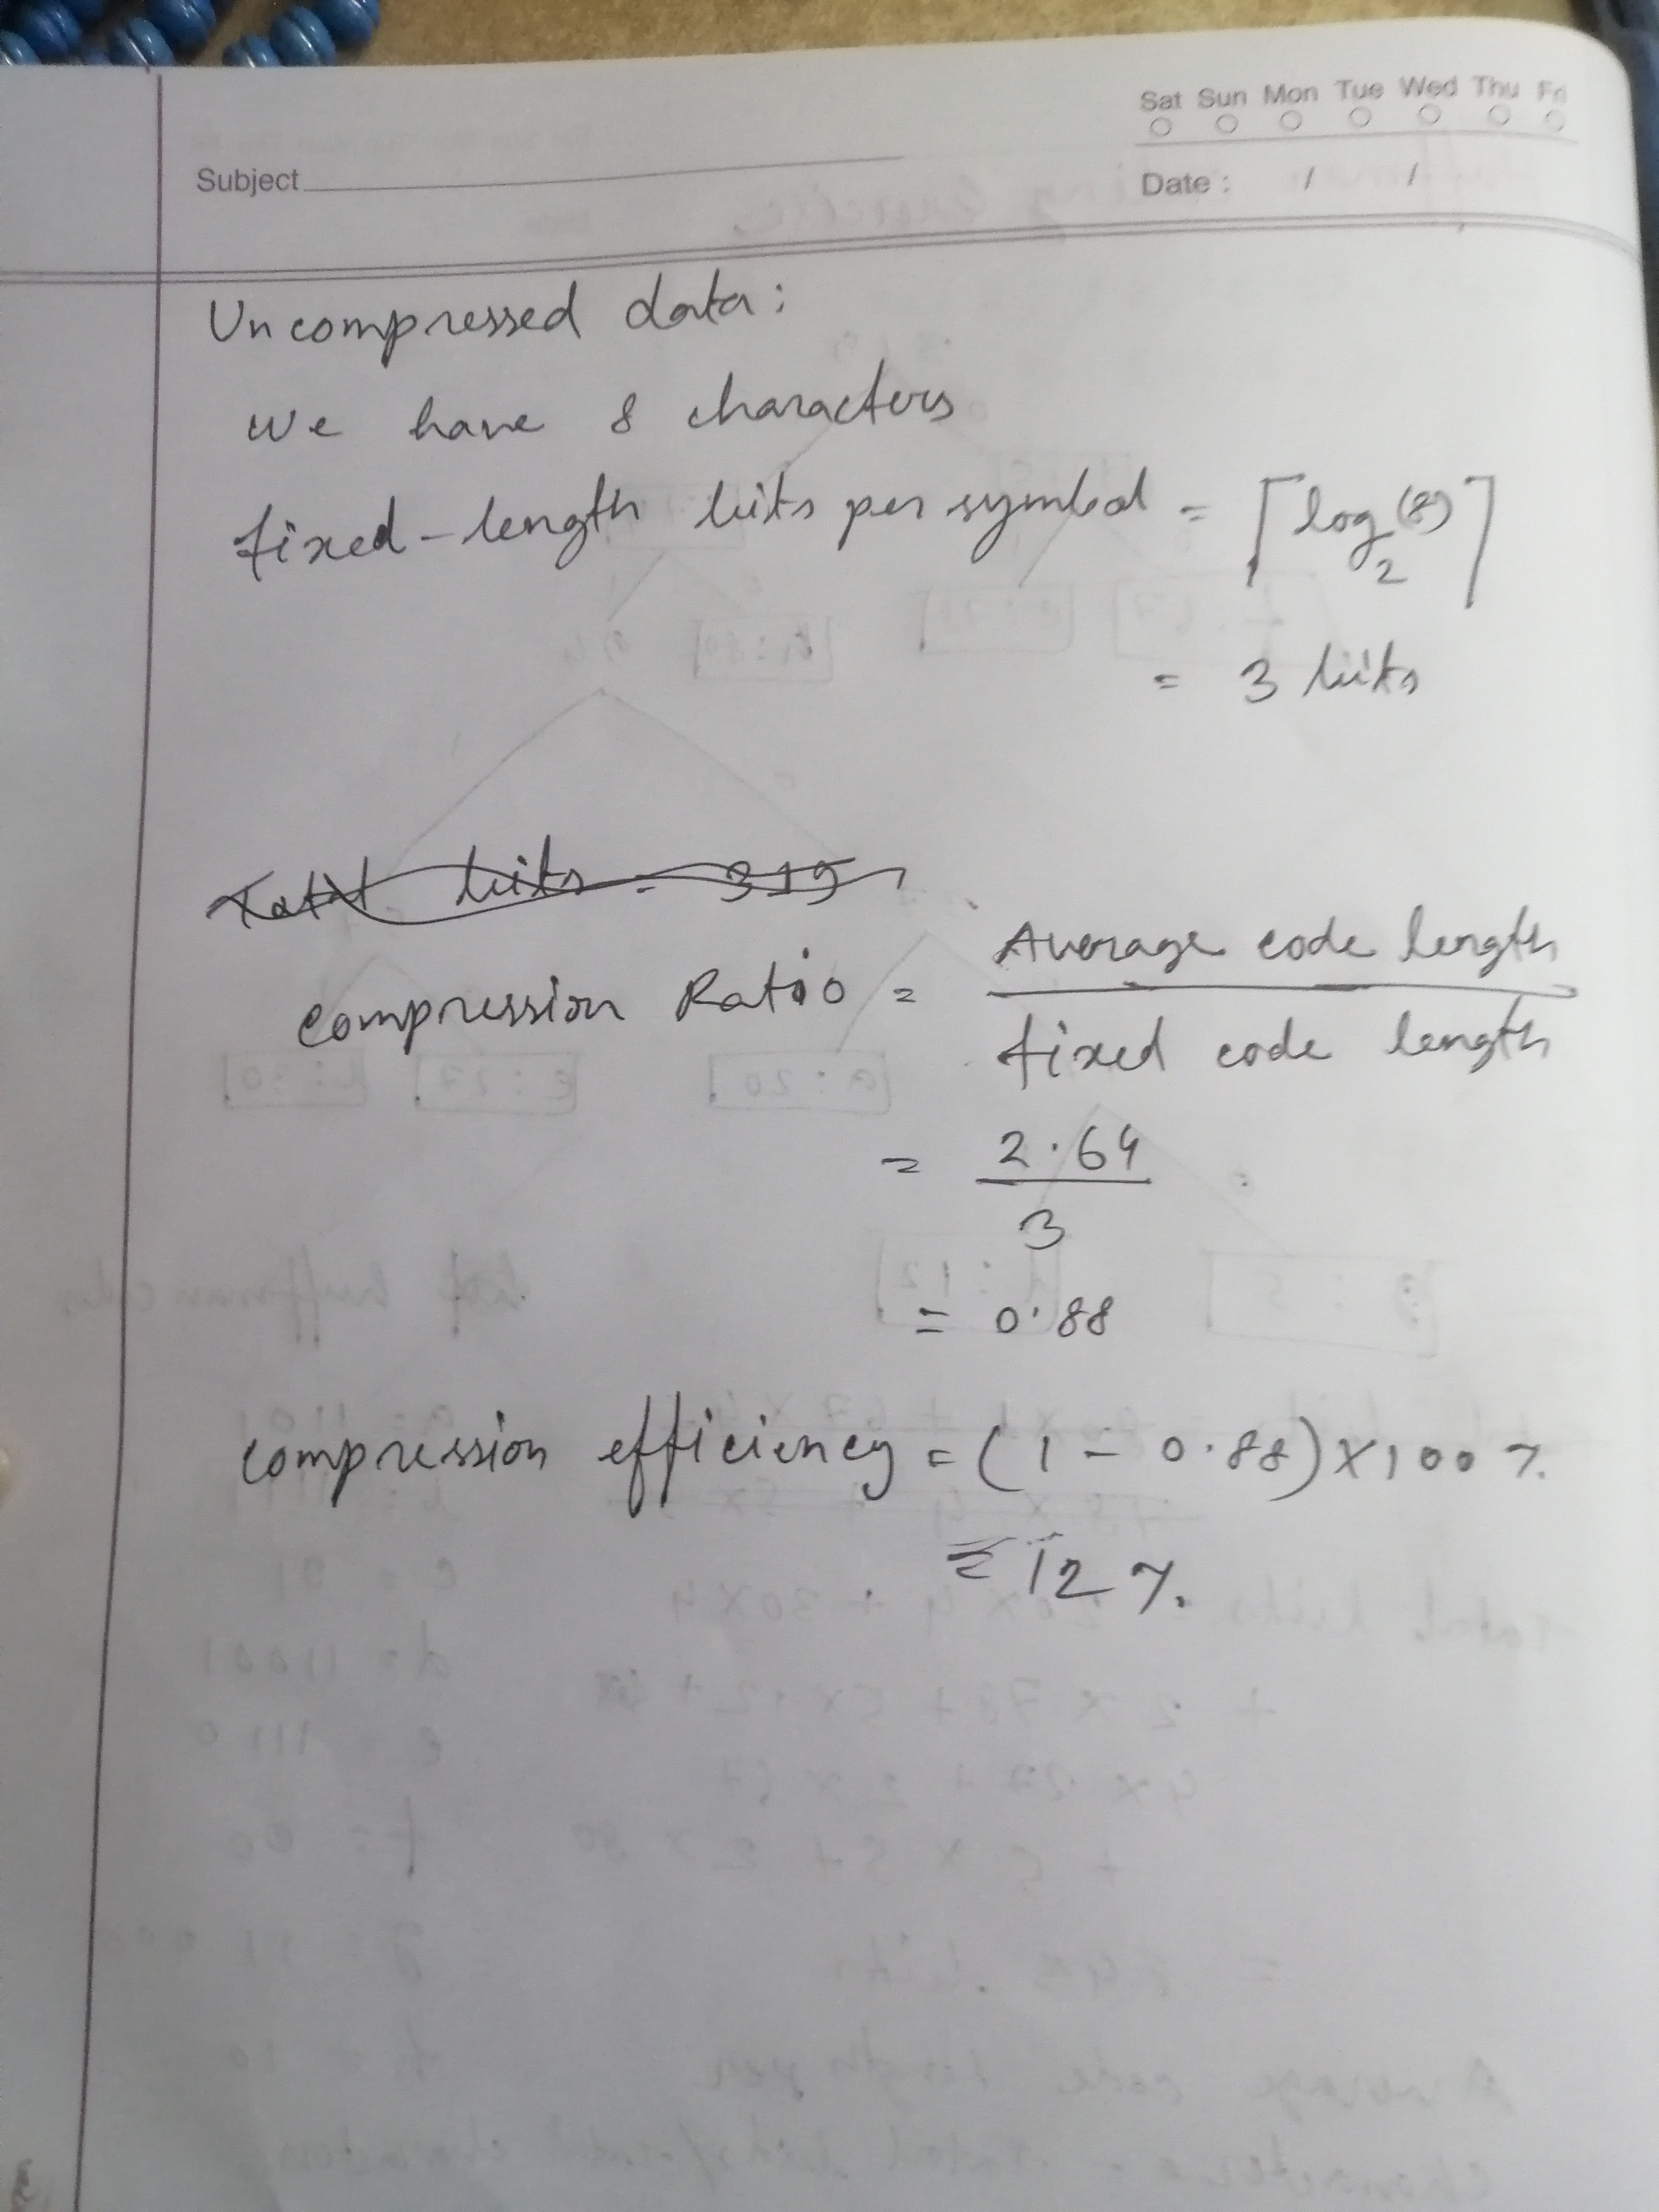 Sat Sun Mon Tue Wed Thu Fri
Subject
Date : / /
Uncompressed data:
we have 8 characters
fixed-length bits per symbol = ⌈log₂(8)⌉
= 3 bits
Total bits = 319
compression Ratio = Average code length / fixed code length
= 2.64 / 3
= 0.88
compression efficiency = (1 - 0.88) × 100 %.
= 12 %.